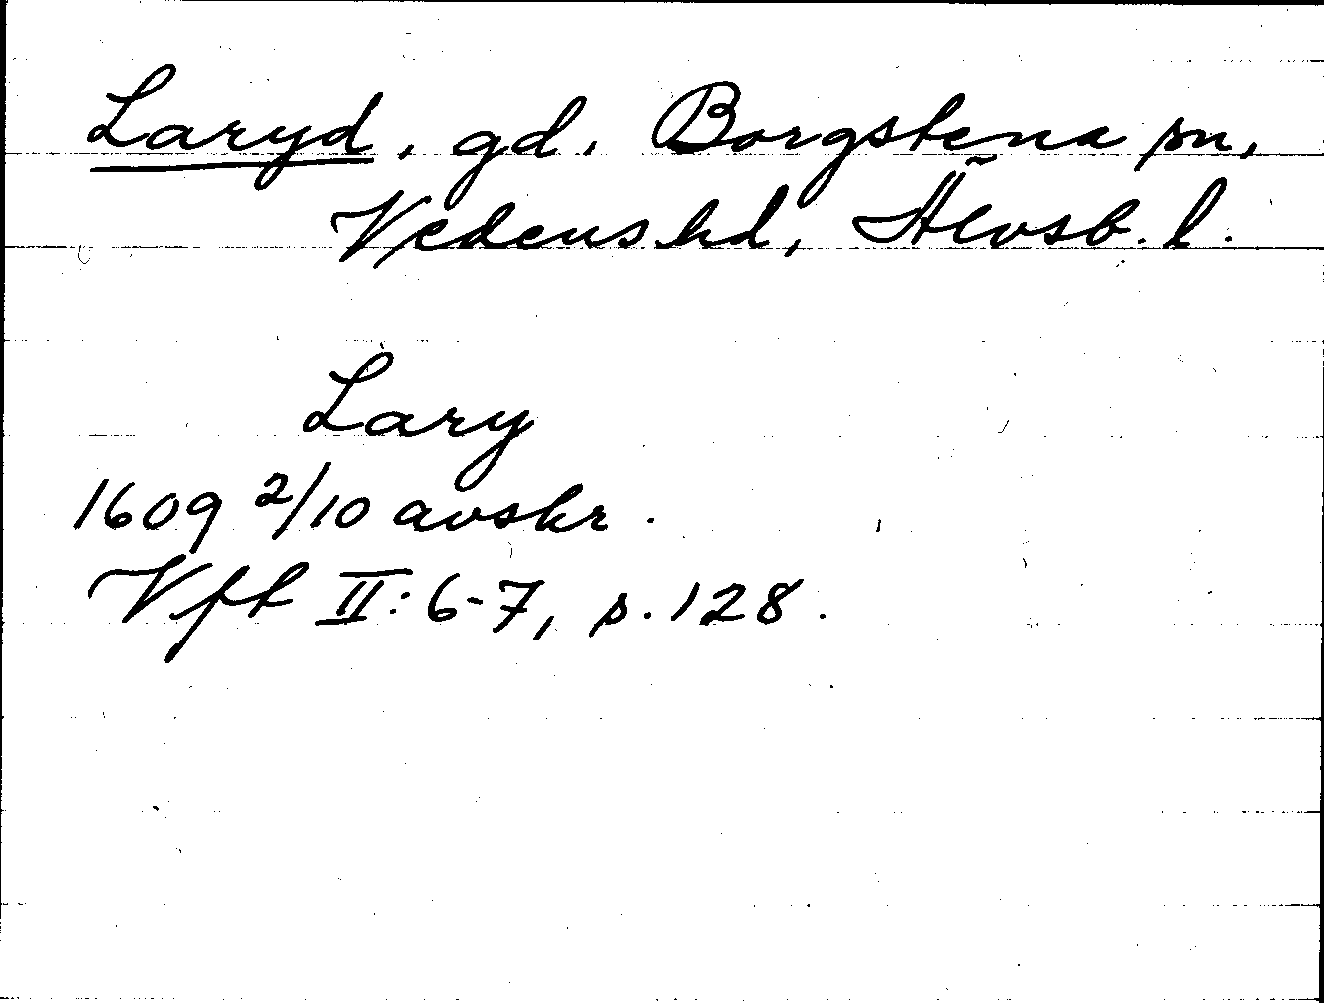 Laryd, gd, Borgstena sn,
Vedens hd, Älvsb. l.
Lary
1609 2/10 avskr.
Vft II: 6-7, s. 128.